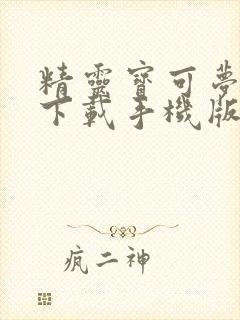 精靈寶可夢
下載手機版
疯二神